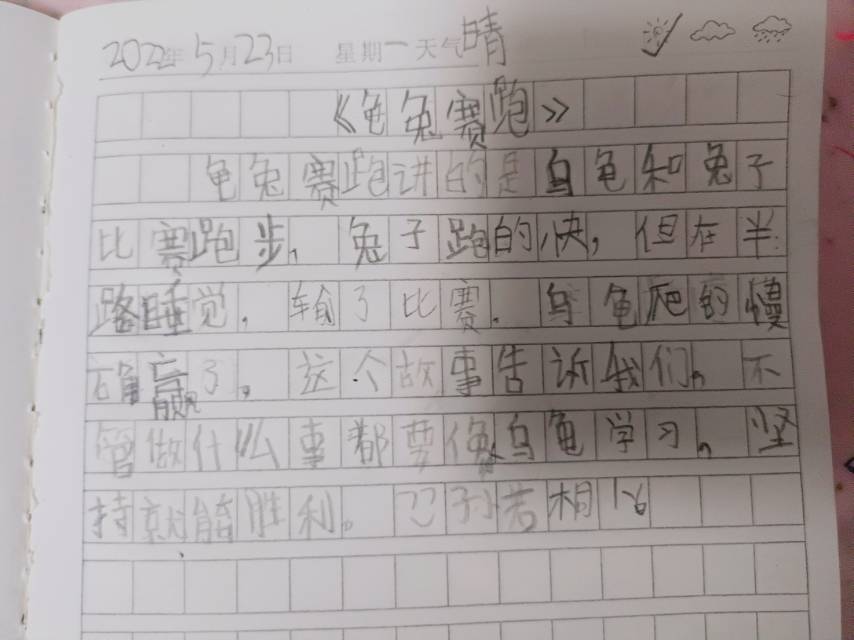 2022年5月23日 星期一 天气晴
《龟兔赛跑》
龟兔赛跑讲的是乌龟和兔子
比赛跑步,兔子跑的快,但在半
路睡觉,输了比赛.乌龟爬的慢
确赢了,这个故事告诉我们,不
管做什么事都要像乌龟学习,坚
持就能胜利。